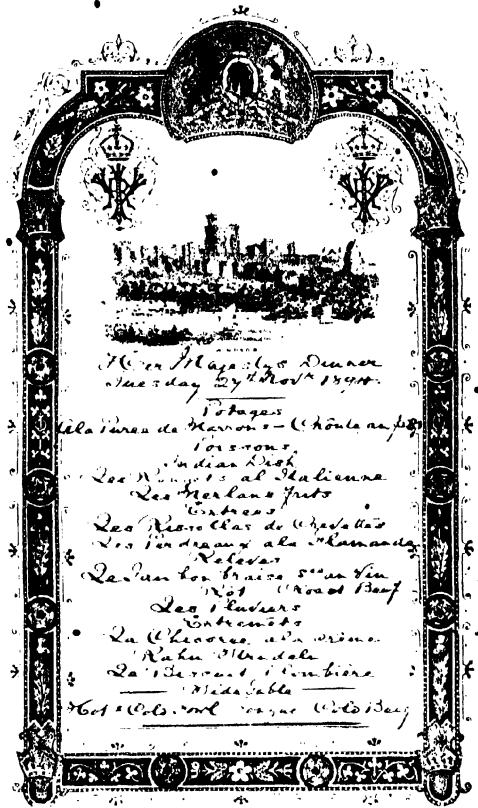 Her Majesty's Dinner
Tuesday 27th Novr 1894.
Potages
à la Puree de Marrons – 
Poissons
Indian Dish
Les à l'Italienne
Les Merlans frits
Entrees
Les Rissolles de Crevettes
Les Perdreaux a la Flamande
Releves
Le Jambon braise au Vin
Rôt Roast Beef
Les Pluviers
Entremêts
La Chicoree a la crème
Le Biscuit Plombière
Side Table
Hot & Cold Fowl Tongue Cold Beef